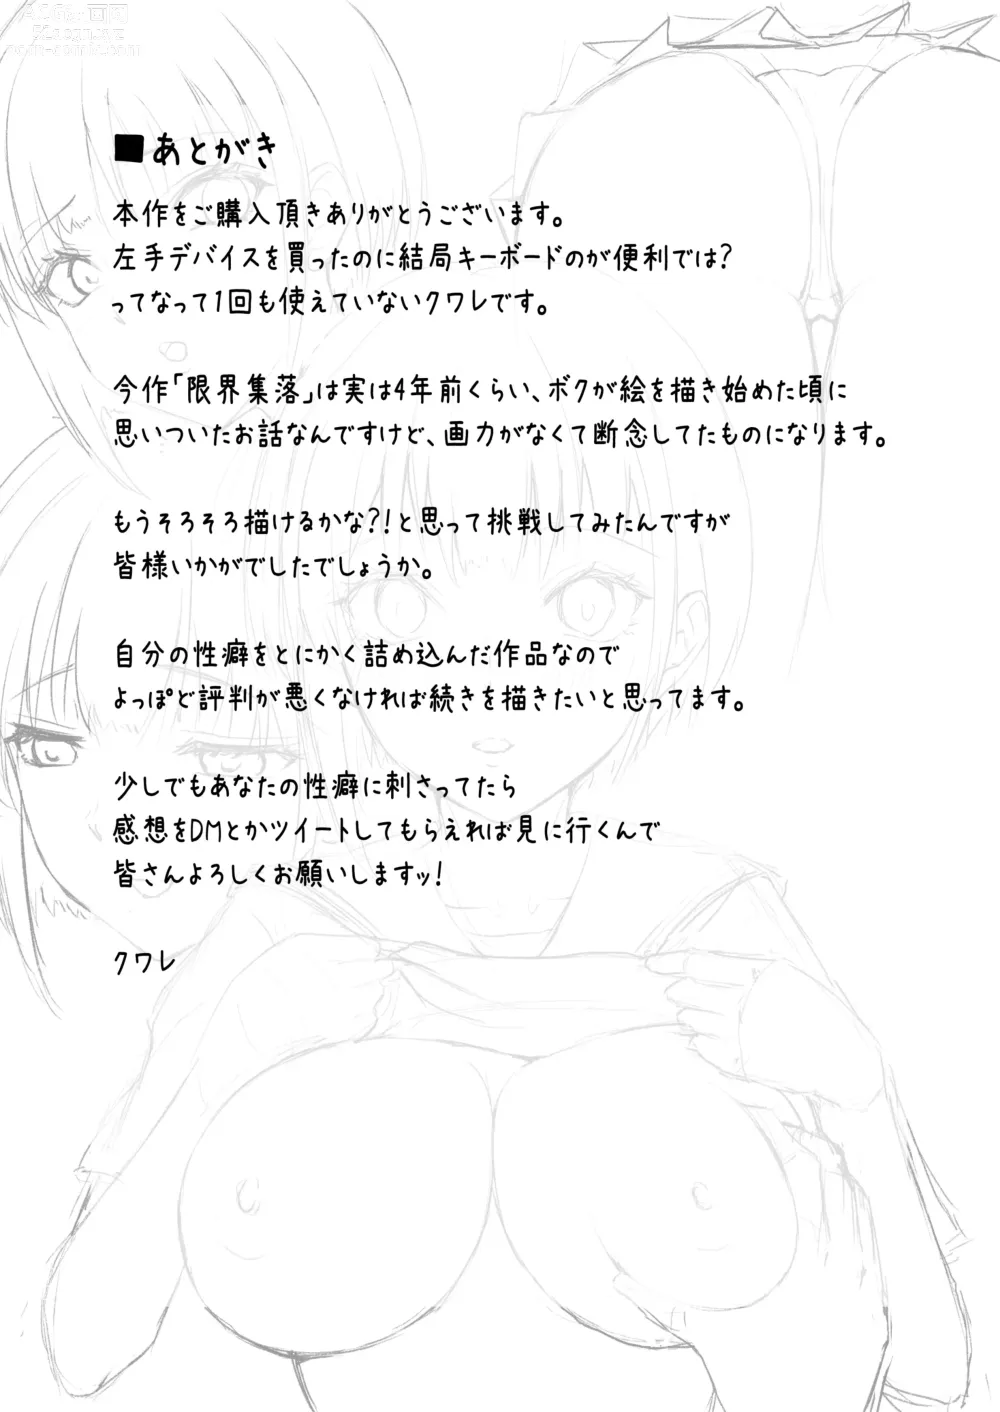 ACG画図
51acgn.xyz
porn-comic.com
■あとがき
本作をご購入頂きありがとうございます。
左手デバイスを買ったのに結局キーボードのが便利では?
ってなって1回も使えていないクワレです。
今作「限界集落」は実は4年前くらい、ボクが絵を描き始めた頃に
思いついたお話なんですけど、画力がなくて断念してたものになります。
もうそろそろ描けるかな?!と思って挑戦してみたんですが
皆様いかがでしたでしょうか。
自分の性癖をとにかく詰め込んだ作品なので
よっぽど評判が悪くなければ続きを描きたいと思ってます。
少しでもあなたの性癖に刺さってたら
感想をDMとかツイートしてもらえれば見に行くんで
皆さんよろしくお願いしますッ!
クワレ